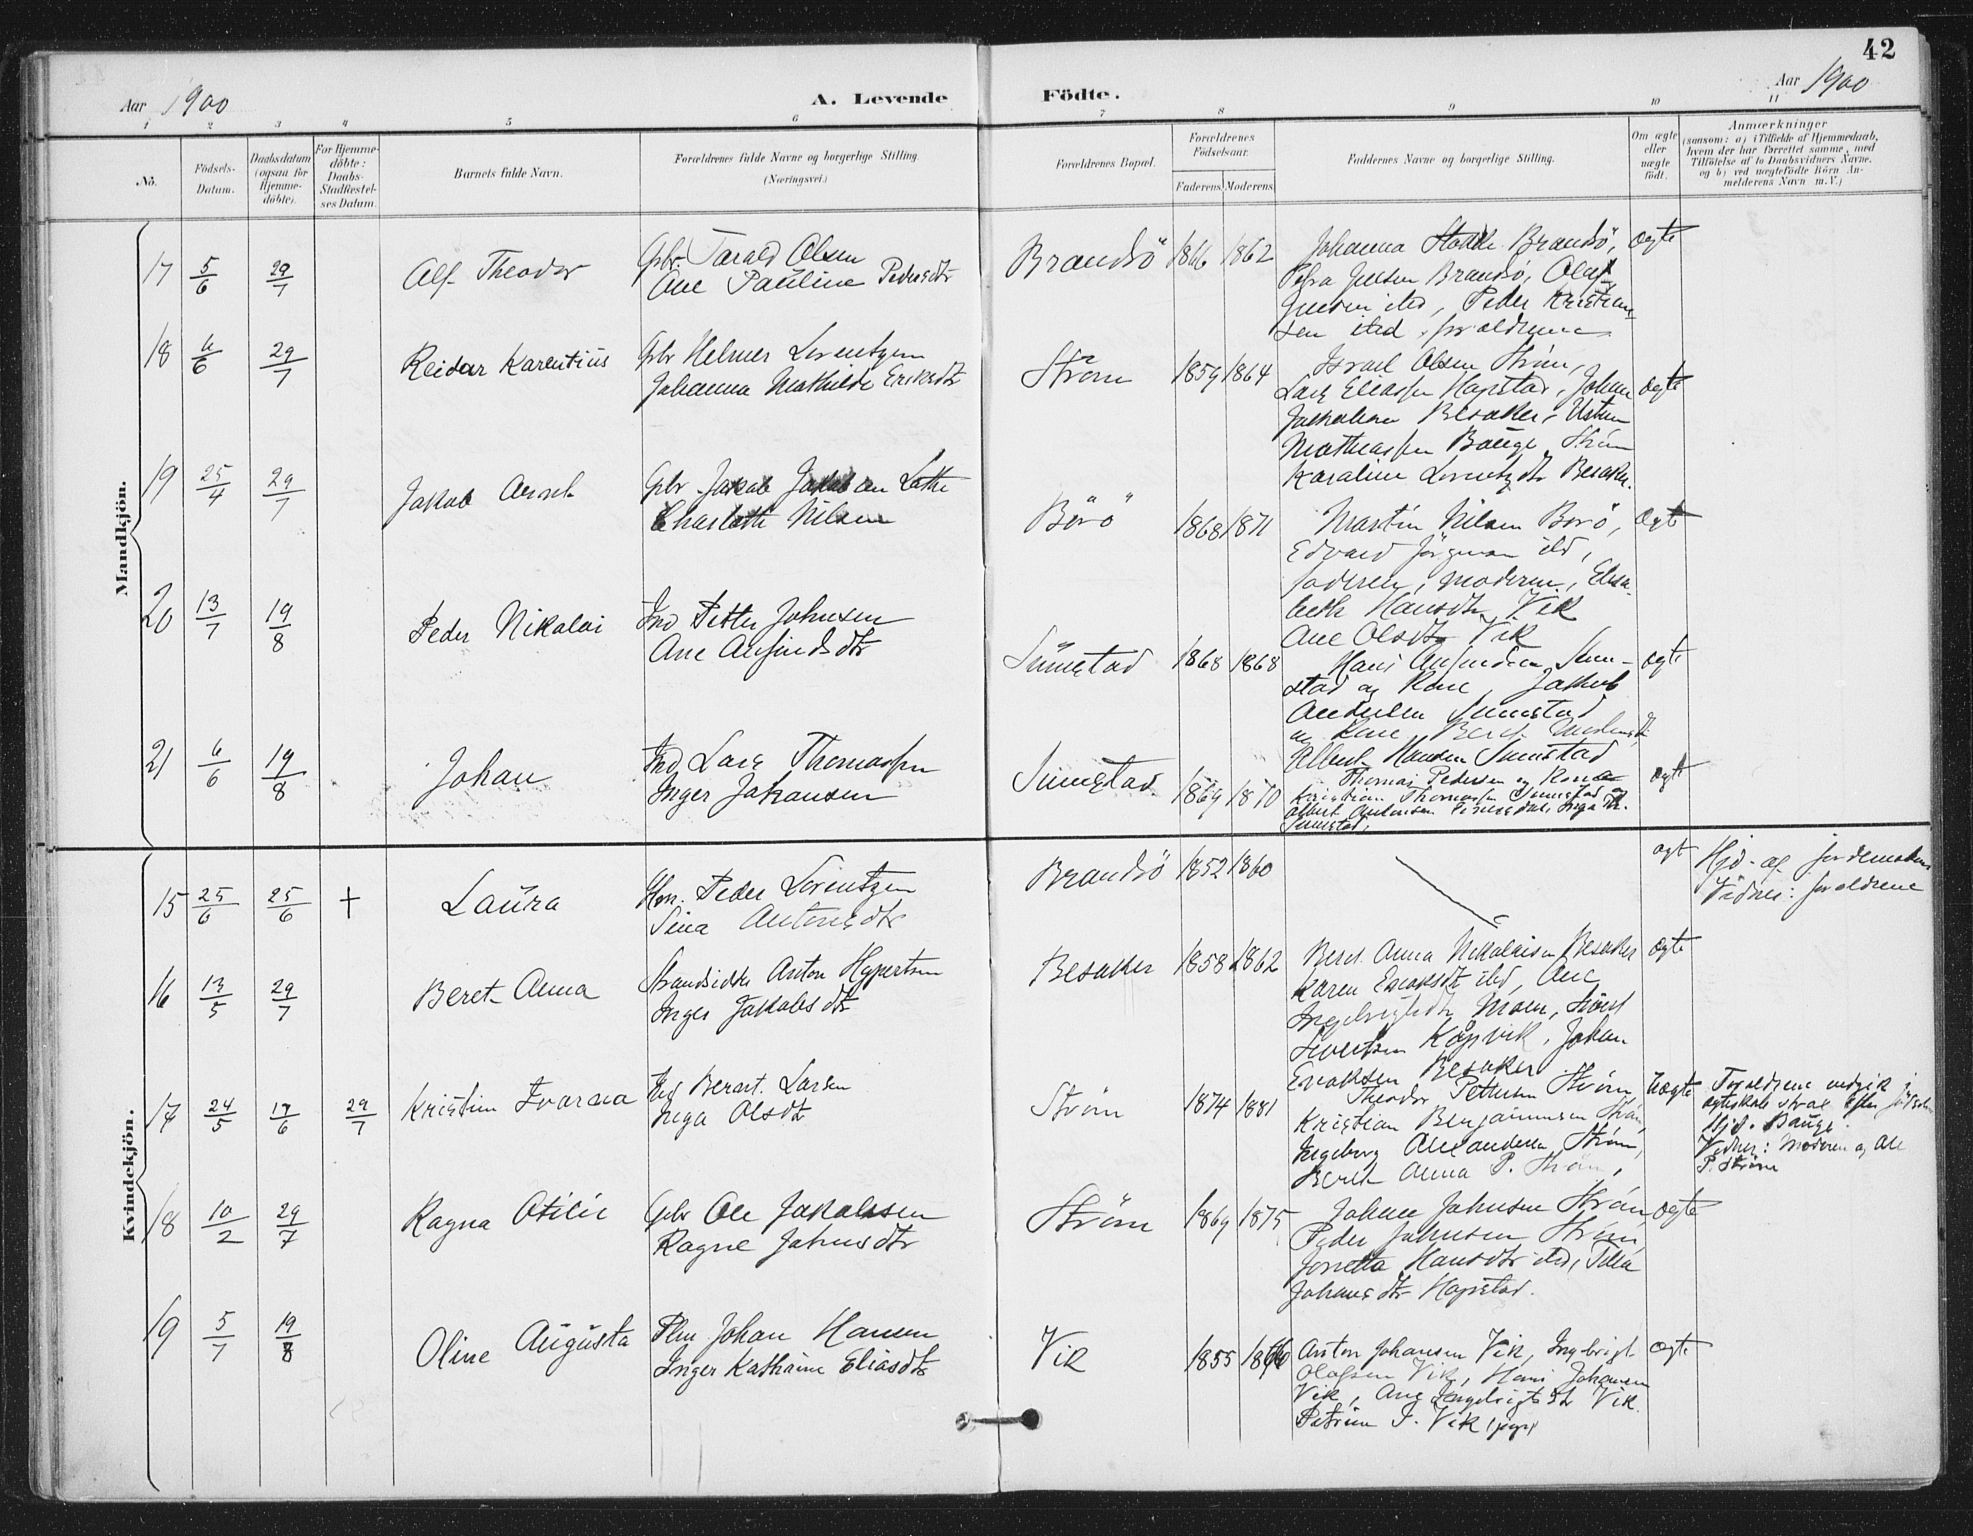 42
Aar 1900
A. Levende
Födte.
Aar 1900
1 2 3 4 5 6 7 8 9 10 11
No.
Födsels-
Datum.
Daabsdatum
(ogsaa for
Hjemme-
döbte).
For Hjemme-
döbte:
Daabs-
Stadfæstel-
ses Datum.
Barnets fulde Navn.
Forældrenes fulde Navne og borgerlige Stilling.
(Næringsvei.)
Forældrenes Bopæl.
Forældrenes
Födselsaar.
Faderens. Moderens.
Faddernes Navne og borgerlige Stilling.
Om ægte
eller
uægte
födt.
Anmærkninger
(saasom: a) i Tilfælde af Hjemmedaab,
hvem der har forrettet samme, med
Tilföielse af to Daabsvidners Navne.
og b) ved uægtefödte Börn An-
melderens Navn m. V.)
Mandkjön.
17 5/6 29/7 Alf Theodor
Gbr Tarald Olsen
Ane Pauline Pedersdtr
Brandsö 1866 1862
Johanna Brandsö,
Petra Juelsen Brandsö, Olaf
Juelsen sted, Peder Kristian-
sen sted, forældrene
Ægte
18 6/6 29/7 Reidar Karentius
Gbr Helmer Lorentzen
Johanna Mathilde Eriksdtr
Ström 1859 1864
Israel Olsen Ström,
Lars Eliassen Hopstad, Johan
Jakobsen Besaker,
Mathiassen Bauge, Ström
Karoline Lorentzdtr Besaker.
Ægte
19 25/4 29/7 Jakob
Gbr Jakob Jakobsen
Charlotte Nilsen
Börö 1868 1871
Martin Nilsen Börö,
Edvard Jörgensen ibd,
faderen, moderen, Elisa-
beth Hansdtr Vik
Ane Olsdtr Vik
Ægte
20 13/7 19/8 Peder Nikolai
Ind Petter Johnsen
Ane Anfindsdtr
Sumstad 1868 1868
Hans Anfindsen Sum-
stad og Kone, Jakob
Andersen Sumstad
og Kone, Beret
Albert Hansen Sumstad
Ægte
21 6/6 19/8 Johan
Ind Lars Thomassen
Inger Johansen
Sumstad 1869 1870
Thomas Pedersen og Kone
Kristian Thomassen Sumstad
Albert Andersen Inga
Sumstad,
Ægte
Kvindekjön.
15 25/6 25/6 + Laura
Peder Lorentzen
Sina Antonsdtr
Brandsö 1852 1860
ægt
Hjd. af jordemoderen
Vidner: forældrene
16 13/5 29/7 Beret Anna
Strandsidder Anton Hypertsen
Inger Jakobsdtr
Besaker 1858 1862
Beret Anna Nikolaisen Besaker
Karen Eriksdtr ibd, Ane
Ingebrigtsdtr Moen, Sivert
Sivertsen Kopvik, Johan
Eriksen Besaker
Ægte
17 24/5 17/6 29/7 Kristine Ivarna
Ind Bernt Larsen
Inga Olsdtr
Ström 1874 1881
Theodor Pettersen Ström,
Kristian Benjaminsen Ström,
Ingeborg Alexandersen Ström,
Beret Anna P. Ström,
Uægte
Forældrene indgik i
ægteskab strax efter födselen
Hjd. Bauge.
Vidner: Moderen og Ole
P. Ström
18 10/2 29/7 Ragna Otilie
Gbr Ole Jakobsen
Ragne Johnsdtr
Ström 1869 1875
Johan Johnsen Ström,
Peder Johnsen Ström,
Jonetta Hansdtr sted, Tilla
Johansdtr Hopstad.
Ægte
19 5/7 19/8 Oline Augusta
Plm Johan Hansen
Inger Kathrine Eliasdtr
Vik 1855 1866
Anton Johansen Vik, Ingebrigt
Olafsen Vik, Hans Johansen
Vik, Ane Ingebrigtsdtr Vik
Petrine J. Vik (pige)
Ægte